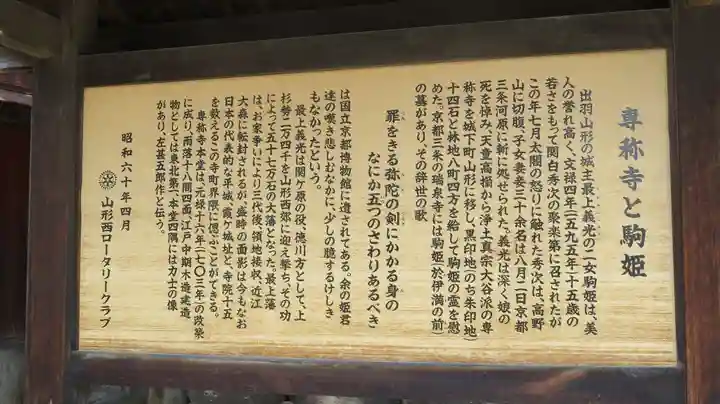 専称寺と駒姫
出羽山形の城主最上義光の二女駒姫は、美
人の誉れ高く、文禄四年(一五九五年)十五歳の
若さをもって関白秀次の聚楽第に召されたが
この年七月太閤の怒りに触れた秀次は、高野
山に切腹、子女妻妾三十余名は八月二日京都
三条河原に斬に処せられた。義光は深く、娘の
死を悼み、天童高擶から浄土真宗大谷派の専
称寺を城下町山形に移し、黒印地(のち朱印地)
十四石と林地八町四方を給して駒姫の霊を慰
めた。京都三条の瑞泉寺には駒姫(於伊満の前)
の墓があり、その辞世の歌
罪をきる弥陀の剣にかかる身の
なにか五つのさわりあるべき
は国立京都博物館に遺されてある。余の姫君
達の嘆き悲しむなかに、少しの臆するけしき
もなかったという。
最上義光は関ケ原の役、徳川方として、上
杉勢二万四千を山形西郊に迎え撃ち、その功
によって五十七万石の大藩となった。最上藩
は、お家争いにより三代後、領地接収、近江
大森に転封されるが、盛時の面影は今もなお
日本の代表的な平城、霞ケ城址と、寺院十五
を数えるこの寺町界隈に偲ぶことができる。
専称寺本堂は、元禄十六年(一七〇三年)の改築
に成り、雨落十八間四面、江戸中期木造建造
物としては東北第一、本堂四隅には力士の像
があり、左甚五郎作と伝う。
昭和六十年四月
山形西ロータリークラブ